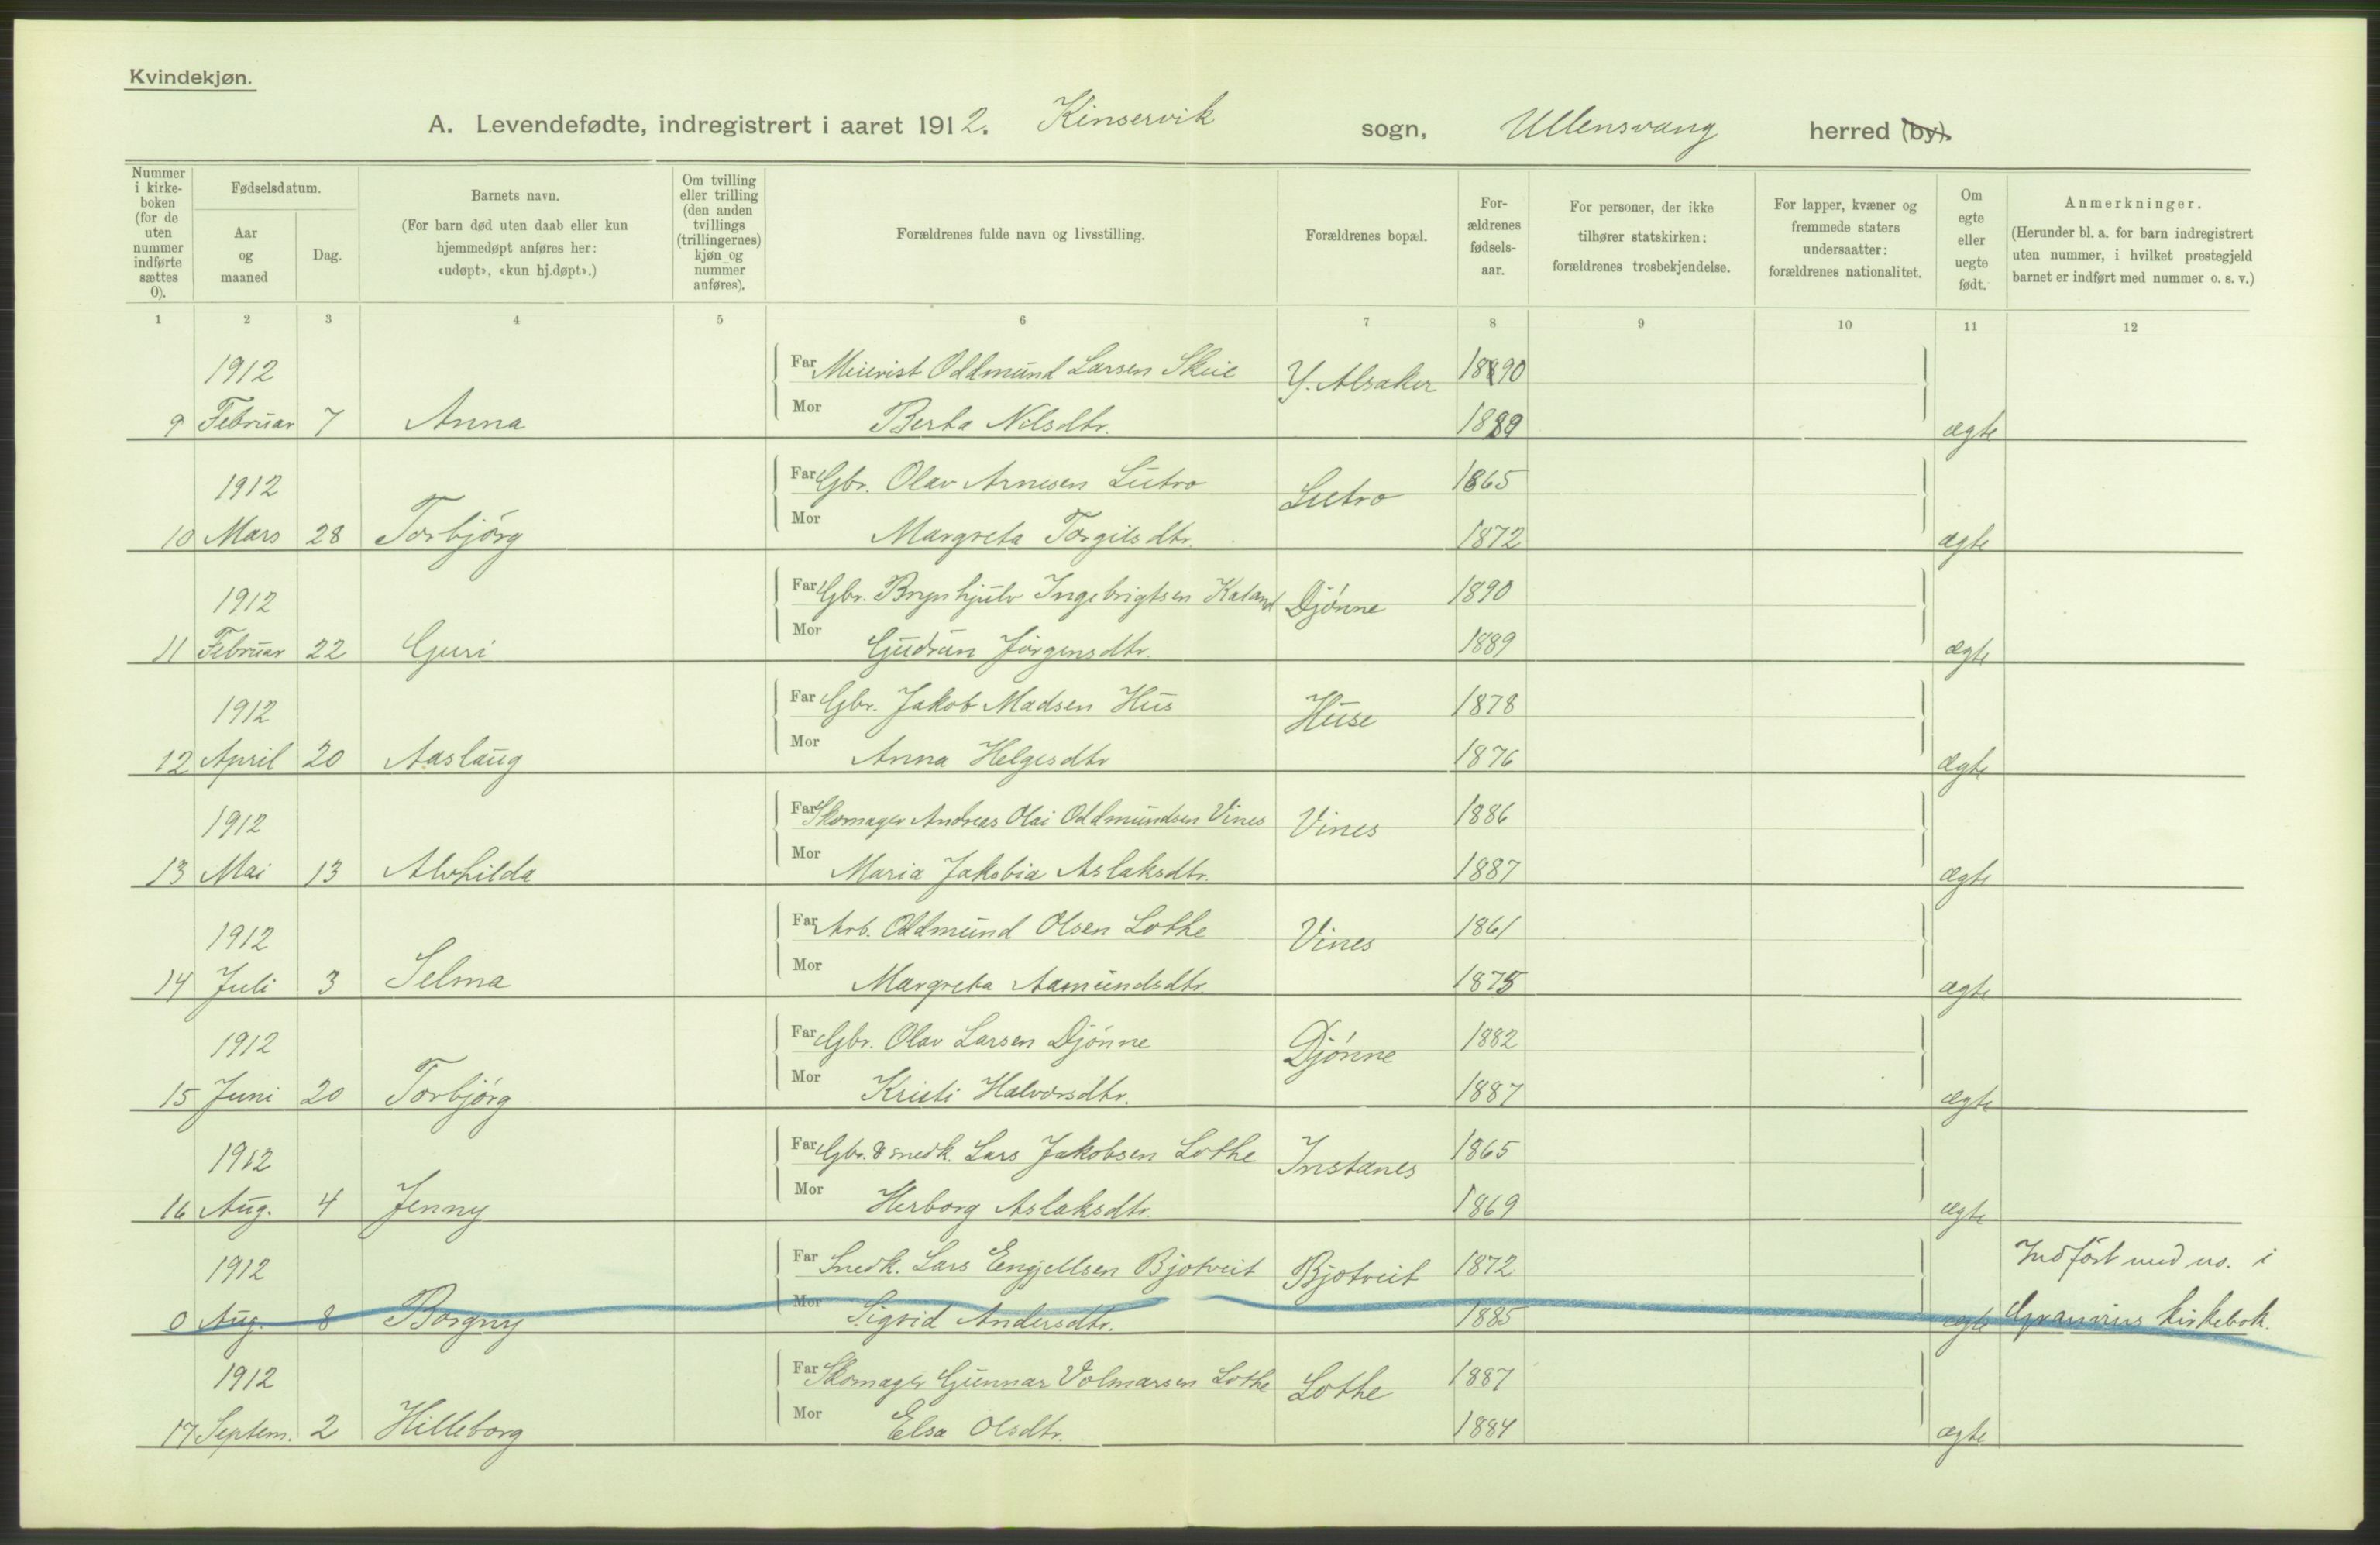 Kvindekjøn.
A. Levendefødte, indregistrert i aaret 1912. Kinservik sogn, Ullensvang herred (by).
Nummer i kirkeboken (for de uten nummer indførte sættes 0).
Fødselsdatum.
Aar og maaned
Dag.
Barnets navn.
(For barn død uten daab eller kun hjemmedøpt anføres her: «udøpt», «kun hj.døpt».)
Om tvilling eller trilling (den anden tvillings (trillingernes) kjøn og nummer anføres).
Forældrenes fulde navn og livsstilling.
Forældrenes bopæl.
Forældrenes fødselsaar.
For personer, der ikke tilhører statskirken: forældrenes trosbekjendelse.
For lapper, kvæner og fremmede staters undersaatter: forældrenes nationalitet.
Om egte eller uegte født.
Anmerkninger.
(Herunder bl. a. for barn indregistrert uten nummer, i hvilket prestegjeld barnet er indført med nummer o. s. v.)
1 2 3 4 5 6 7 8 9 10 11 12
1912 Far Meierist Oddmund Larsen Skeie Y. Alsaker 1890
9 Februar 7 Anna Mor Berta Nilsdtr. 1889 ægte
1912 Far Gbr. Olav Arnesen Lutro Lutro 1865
10 Mars 28 Torbjørg Mor Margreta Torgilsdtr. 1872 ægte
1912 Far Gbr. Brynhjulv Ingebrigtsen Kaland Djønne 1890
11 Februar 22 Guri Mor Gudrun Jørgensdtr. 1889 ægte
1912 Far Gbr. Jakob Madsen Hus Huse 1878
12 April 20 Aaslaug Mor Anna Helgesdtr 1876 ægte
1912 Far Skomager Andreas Olai Oddmundsen Vines Vines 1886
13 Mai 13 Alvhilda Mor Maria Jakobia Aslaksdtr. 1887 ægte
1912 Far Arb. Oddmund Olsen Lothe Vines 1861
14 Juli 3 Selma Mor Margreta Aamundsdtr. 1875 ægte
1912 Far Gbr. Olav Larsen Djønne Djønne 1882
15 Juni 20 Torbjørg Mor Kristi Halvorsdtr. 1887 ægte
1912 Far Gbr. & snedk. Lars Jakobsen Lothe Instanes 1865
16 Aug. 4 Jenny Mor Herborg Aslaksdtr. 1869 ægte
1912 Far Snedk. Lars Engjellsen Bjotveit Bjotveit 1872 Indført med no. i
0 Aug. 8 Borgny Mor Sigrid Andersdtr. 1885 ægte Granvins kirkebok.
1912 Far Skomager Gunnar Volmarsen Lothe Lothe 1887
17 Septem. 2 Hilleborg Mor Elsa Olsdtr. 1884 ægte